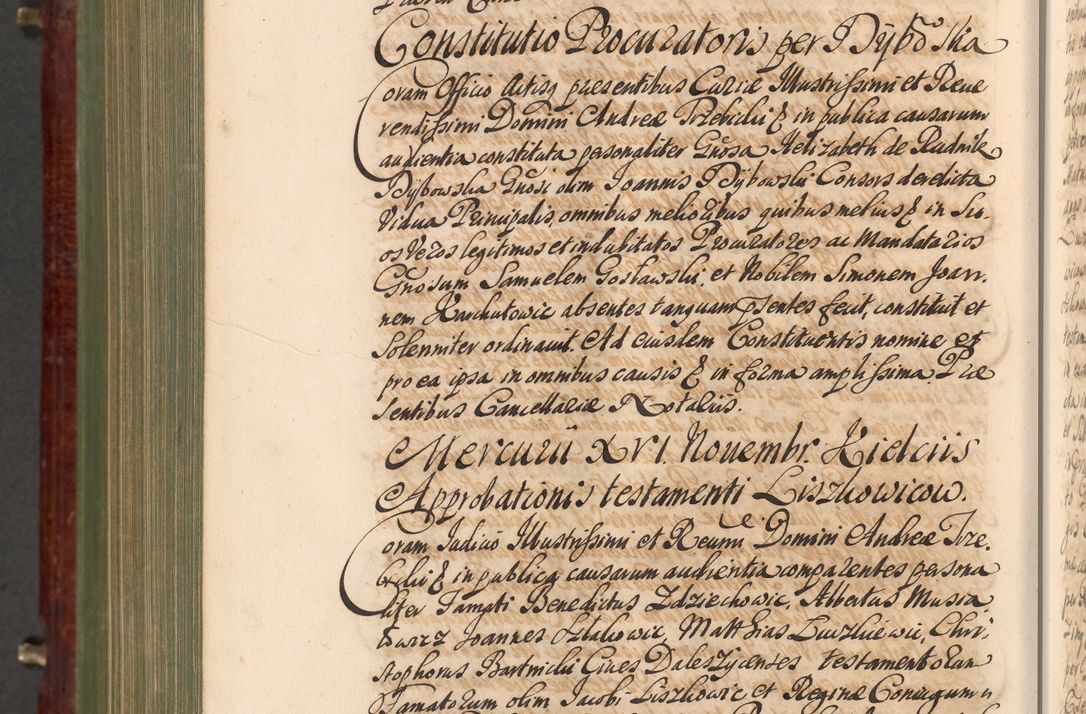 Constitutio Procuratoris per G Dybowska
Coram Officio Actisq praesentibus Curiae Illustrissimi et Reue
rendissimi Domini Andreae Trzebicki & in publica causarum
audientia constituta personaliter Gnosa Helizabeth de Rudnik
Dybowska Gnosi olim Joannis Dybowski Consors derelicta
Vidua Principalis, omnibus melioribus quibus melius & in Su-
os Veros legitimos et indubitatos Procuratores ac Mandatarios
Gnosum Samuelem Gosławski, et Nobilem Simonem Joan-
nem Karchutowic absentes tanquam psentes fecit, constituit et
Solenniter ordinauit. Ad eiusdem Constituentis nomine et
pro ea ipsa in omnibus causis & in forma amplissima. Prae
sentibus Cancellariae Notariis.
Mercurii XVI. Nouembr. Kielciis
Approbationis testamenti Liszkowicow.
Coram Iudicio Illustrissimi et Reueñ Domini Andreae Trze-
bicki & in publica causarum audientia comparentes persona
liter Famati Benedictus Zdziechowic, Albertus Musia
Joannes Matthias Chri-
stophorus Bartnicki Ciues Daleszycenses testamentorum
Famatorum olim Jacobi Liszkowic et Reginae Coniugum